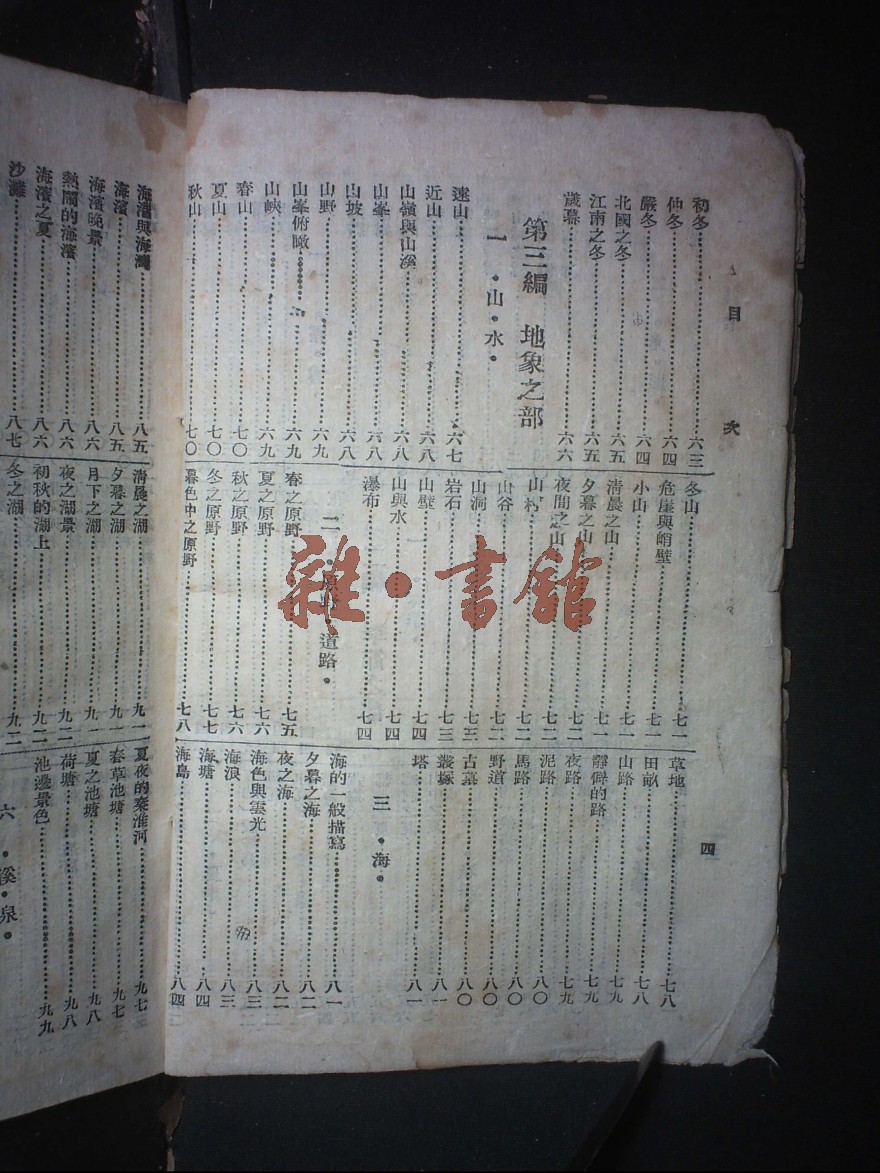 目 次
四
初冬……六三
仲冬……六四
嚴冬……六四
北國之冬……六五
江南之冬……六五
歲暮……六六
第三編 地象之部
一・山・水・
遠山……六七
近山……六八
山嶺與山溪……六八
山峯……六八
山坡……六八
山野……六九
山峯俯瞰……六九
山峽……六九
春山……七〇
夏山……七〇
秋山……七〇
冬山……七一
危崖與峭壁……七一
小山……七一
清晨之山……七一
夕暮之山……七二
夜間之山……七二
山村……七二
山谷……七二
山洞……七三
岩石……七三
山壁……七四
山與水……七四
瀑布……七四
二・道路・
春之原野……七五
夏之原野……七六
秋之原野……七六
冬之原野……七七
暮色中之原野……七八
草地……七八
田畝……七八
山路……七九
靜僻的路……七九
夜路……七九
泥路……八〇
馬路……八〇
野道……八〇
古墓……八〇
叢塚……八一
塔……八一
三・海・
海的一般描寫……八一
夕暮之海……八二
夜之海……八二
海色與雲光……八三
海浪……八三
海塘……八四
海島……八四
海濱與海灣……八五
海濱……八五
海濱晚景……八六
熱鬧的海濱……八六
海濱之夏……八六
沙灘……八七
清晨之湖……九一
夕暮之湖……九一
月下之湖……九一
夜之湖景……九二
初秋的湖上……九二
冬之湖……九二
夏夜的秦淮河……九七
春草池塘……九七
夏之池塘……九八
荷塘……九八
池邊景色……九九
六・溪・泉・
雜・書館